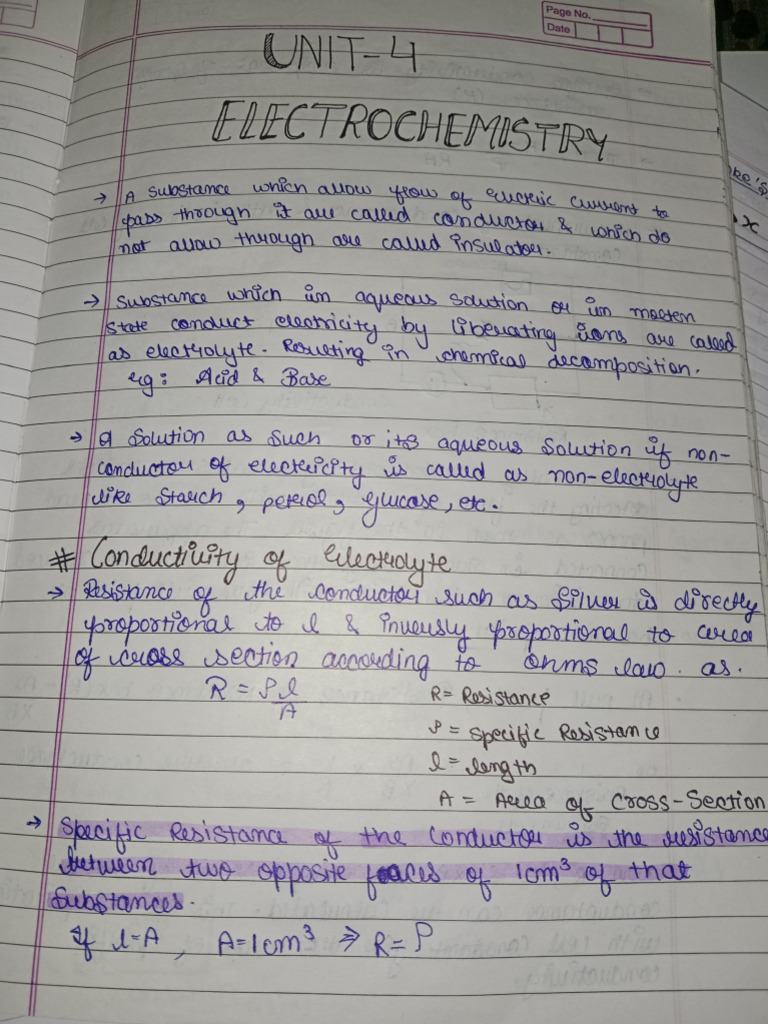 Page No.
Date
UNIT-4
ELECTROCHEMISTRY
→ A substance which allow flow of electric current to
pass through it are called conductor & which do
not allow through are called insulator.
→ Substance which in aqueous solution or in molten
state conduct electricity by liberating ions are called
as electrolyte. Resulting in chemical decomposition.
eg: Acid & Base
→ A Solution as such or its aqueous solution if non-
conductor of electricity is called as non-electrolyte
like starch, petrol, glucose, etc.
# Conductivity of electrolyte
→ Resistance of the conductor such as silver is directly
proportional to l & inversly proportional to area
of cross section according to ohms law. as.
R = ρl/A R = Resistance
ρ = Specific Resistance
l = length
A = Area of Cross-Section
→ Specific Resistance of the conductor is the resistance
between two opposite faces of 1cm³ of that
substances.
If l=A, A=1cm³ ⇒ R=ρ
ke's
x